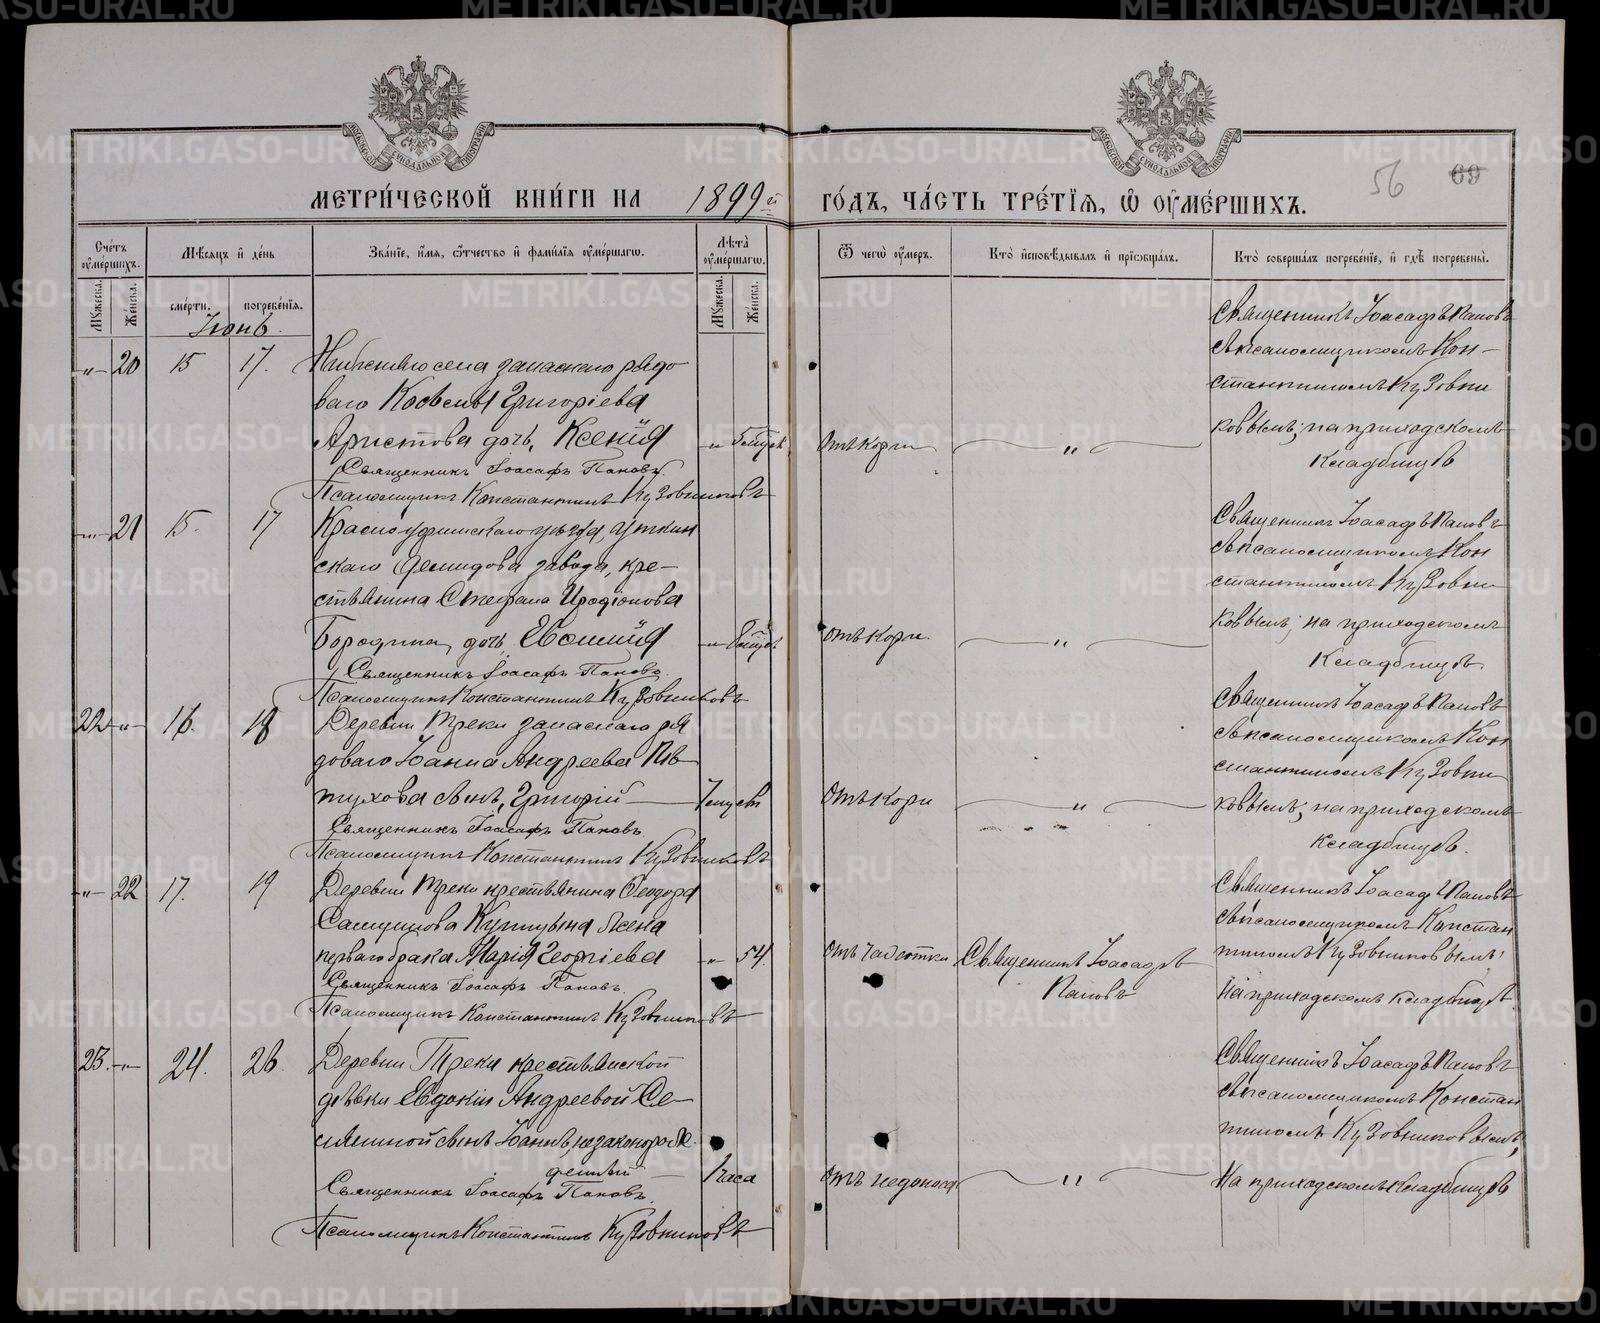 МЕТРИ́ЧЕСКОЙ КНИ́ГИ НА 1899й ГО́ДЪ, ЧА́СТЬ ТРЕ́ТІѦ, Ѡ ОУМЕ́РШИХЪ.
56 69
Сче́тъ оумершихъ.
Мужеска.
Женска.
Мѣсѧцъ и день
сме́рти.
погребе́нїѧ.
Зва́нїе, и́мѧ, ѻтчество и фами́лїѧ оуме́ршагѡ.
Лѣта̀ оуме́ршагѡ.
Мужеска.
Женска.
Ѿ чегѡ̀ оумеръ.
Кто̀ исповѣдывалъ и прїѡбщалъ.
Кто̀ соверша́лъ погребе́нїе, и гдѣ̀ погребены̀.
Іюнь.
„ 20 15 17.
села запаснаго рядо
ваго Григоріева
Аристова дочь, Ксенія
Отъ кори
„
Священникъ Іоасафъ Пановъ
Псаломщикъ Константинъ Кузовниковъ
Священникъ Іоасафъ Пановъ
съ псаломщикомъ Кон-
стантиномъ Кузовни
ковымъ; на приходскомъ
кладбищѣ
„ 21 15. 17
Красноуфимскаго уѣзда, Уткин
скаго Демидова завода, кре-
стьянина Стефана Иродіонова
Бородина, дочь,
отъ кори.
„
Священникъ Іоасафъ Пановъ.
Псаломщикъ Константинъ Кузовниковъ
Священникъ Іоасафъ Пановъ
съ псаломщикомъ Кон
стантиномъ Кузовни
ковымъ; на приходскомъ
кладбищѣ.
22 „ 16. 18
Деревни Треки запаснаго ря
доваго Іоанна Андреева Пѣ
тухова сынъ, Григорій
Отъ кори
„
Священникъ Іоасафъ Пановъ.
Псаломщикъ Константинъ Кузовниковъ
Священникъ Іоасафъ Пановъ
съ псаломщикомъ Кон
стантиномъ Кузовни
ковымъ; на приходскомъ
кладбищѣ.
„ 22 17. 19
Деревни Треки крестьянина Ѳеодора
Самуилова Купцына жена
перваго брака Марія Георгіева
„ 54.
Отъ чахотки
Священникъ Іоасафъ
Пановъ
Священникъ Іоасафъ Пановъ.
Псаломщикъ Константинъ Кузовниковъ
Священникъ Іоасафъ Пановъ
съ псаломщикомъ Констан
тиномъ Кузовниковымъ;
на приходскомъ кладбищѣ
23. „ 24. 26.
Деревни Треки крестьянской
дѣвки Евдокіи Андреевой
сынъ Іоаннъ, незаконорож
денный
часа
Отъ недоноса
„
Священникъ Іоасафъ Пановъ.
Псаломщикъ Константинъ Кузовниковъ
Священникъ Іоасафъ Пановъ
съ псаломщикомъ Констан
тиномъ Кузовниковымъ;
на приходскомъ кладбищѣ
METRIKI.GASO-URAL.RU